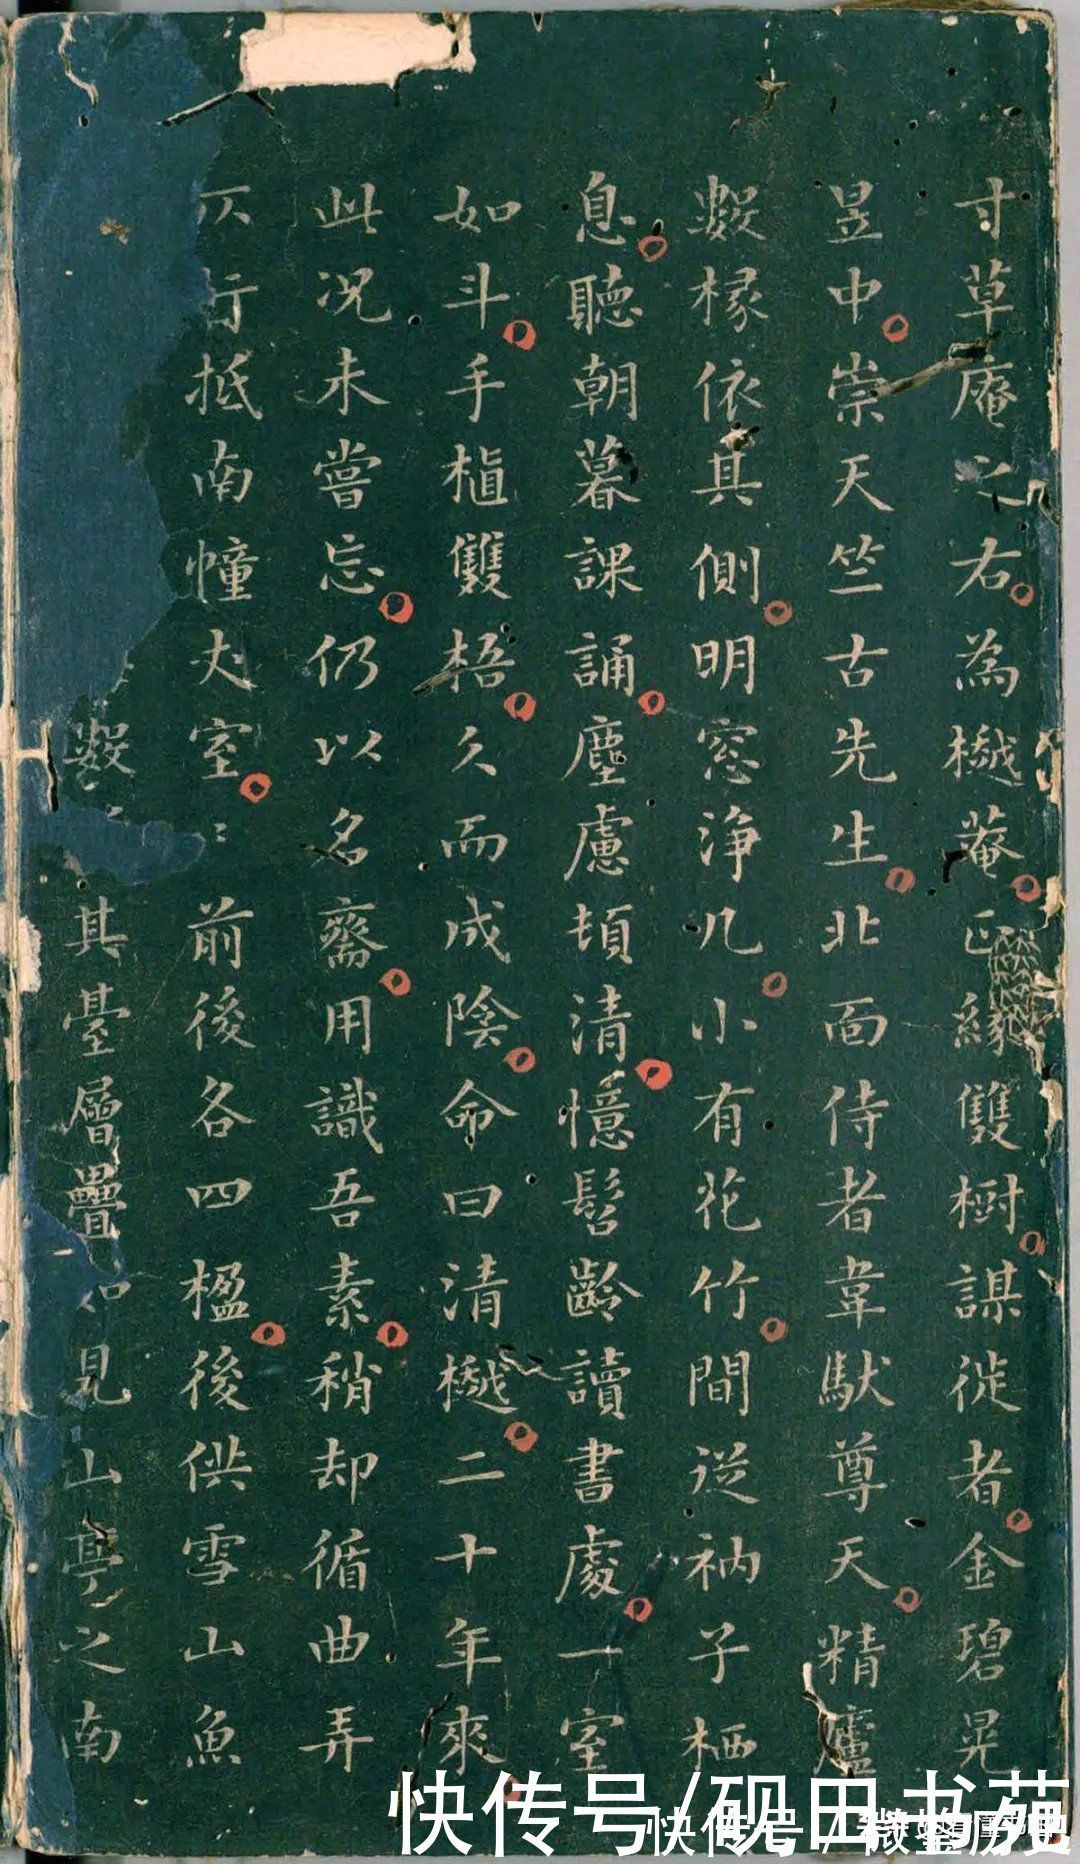 寸草庵之右為樾菴正緣雙樹謀徙者金碧晃
昱中崇天竺古先生北面侍者韋馱尊天精廬
數椽依其側明窓淨几小有花竹間從衲子栖
息聽朝暮課誦塵慮頓清憶髫齡讀書處一室
如斗手植雙梧久而成陰命曰清樾二十年來
此況未嘗忘仍以名齋用識吾素稍却循曲弄
仄行抵南幢丈室前後各四楹後供雪山魚
數其臺層疊見山亭之南
快传号/砚田书苑
快传号/微鉴历史